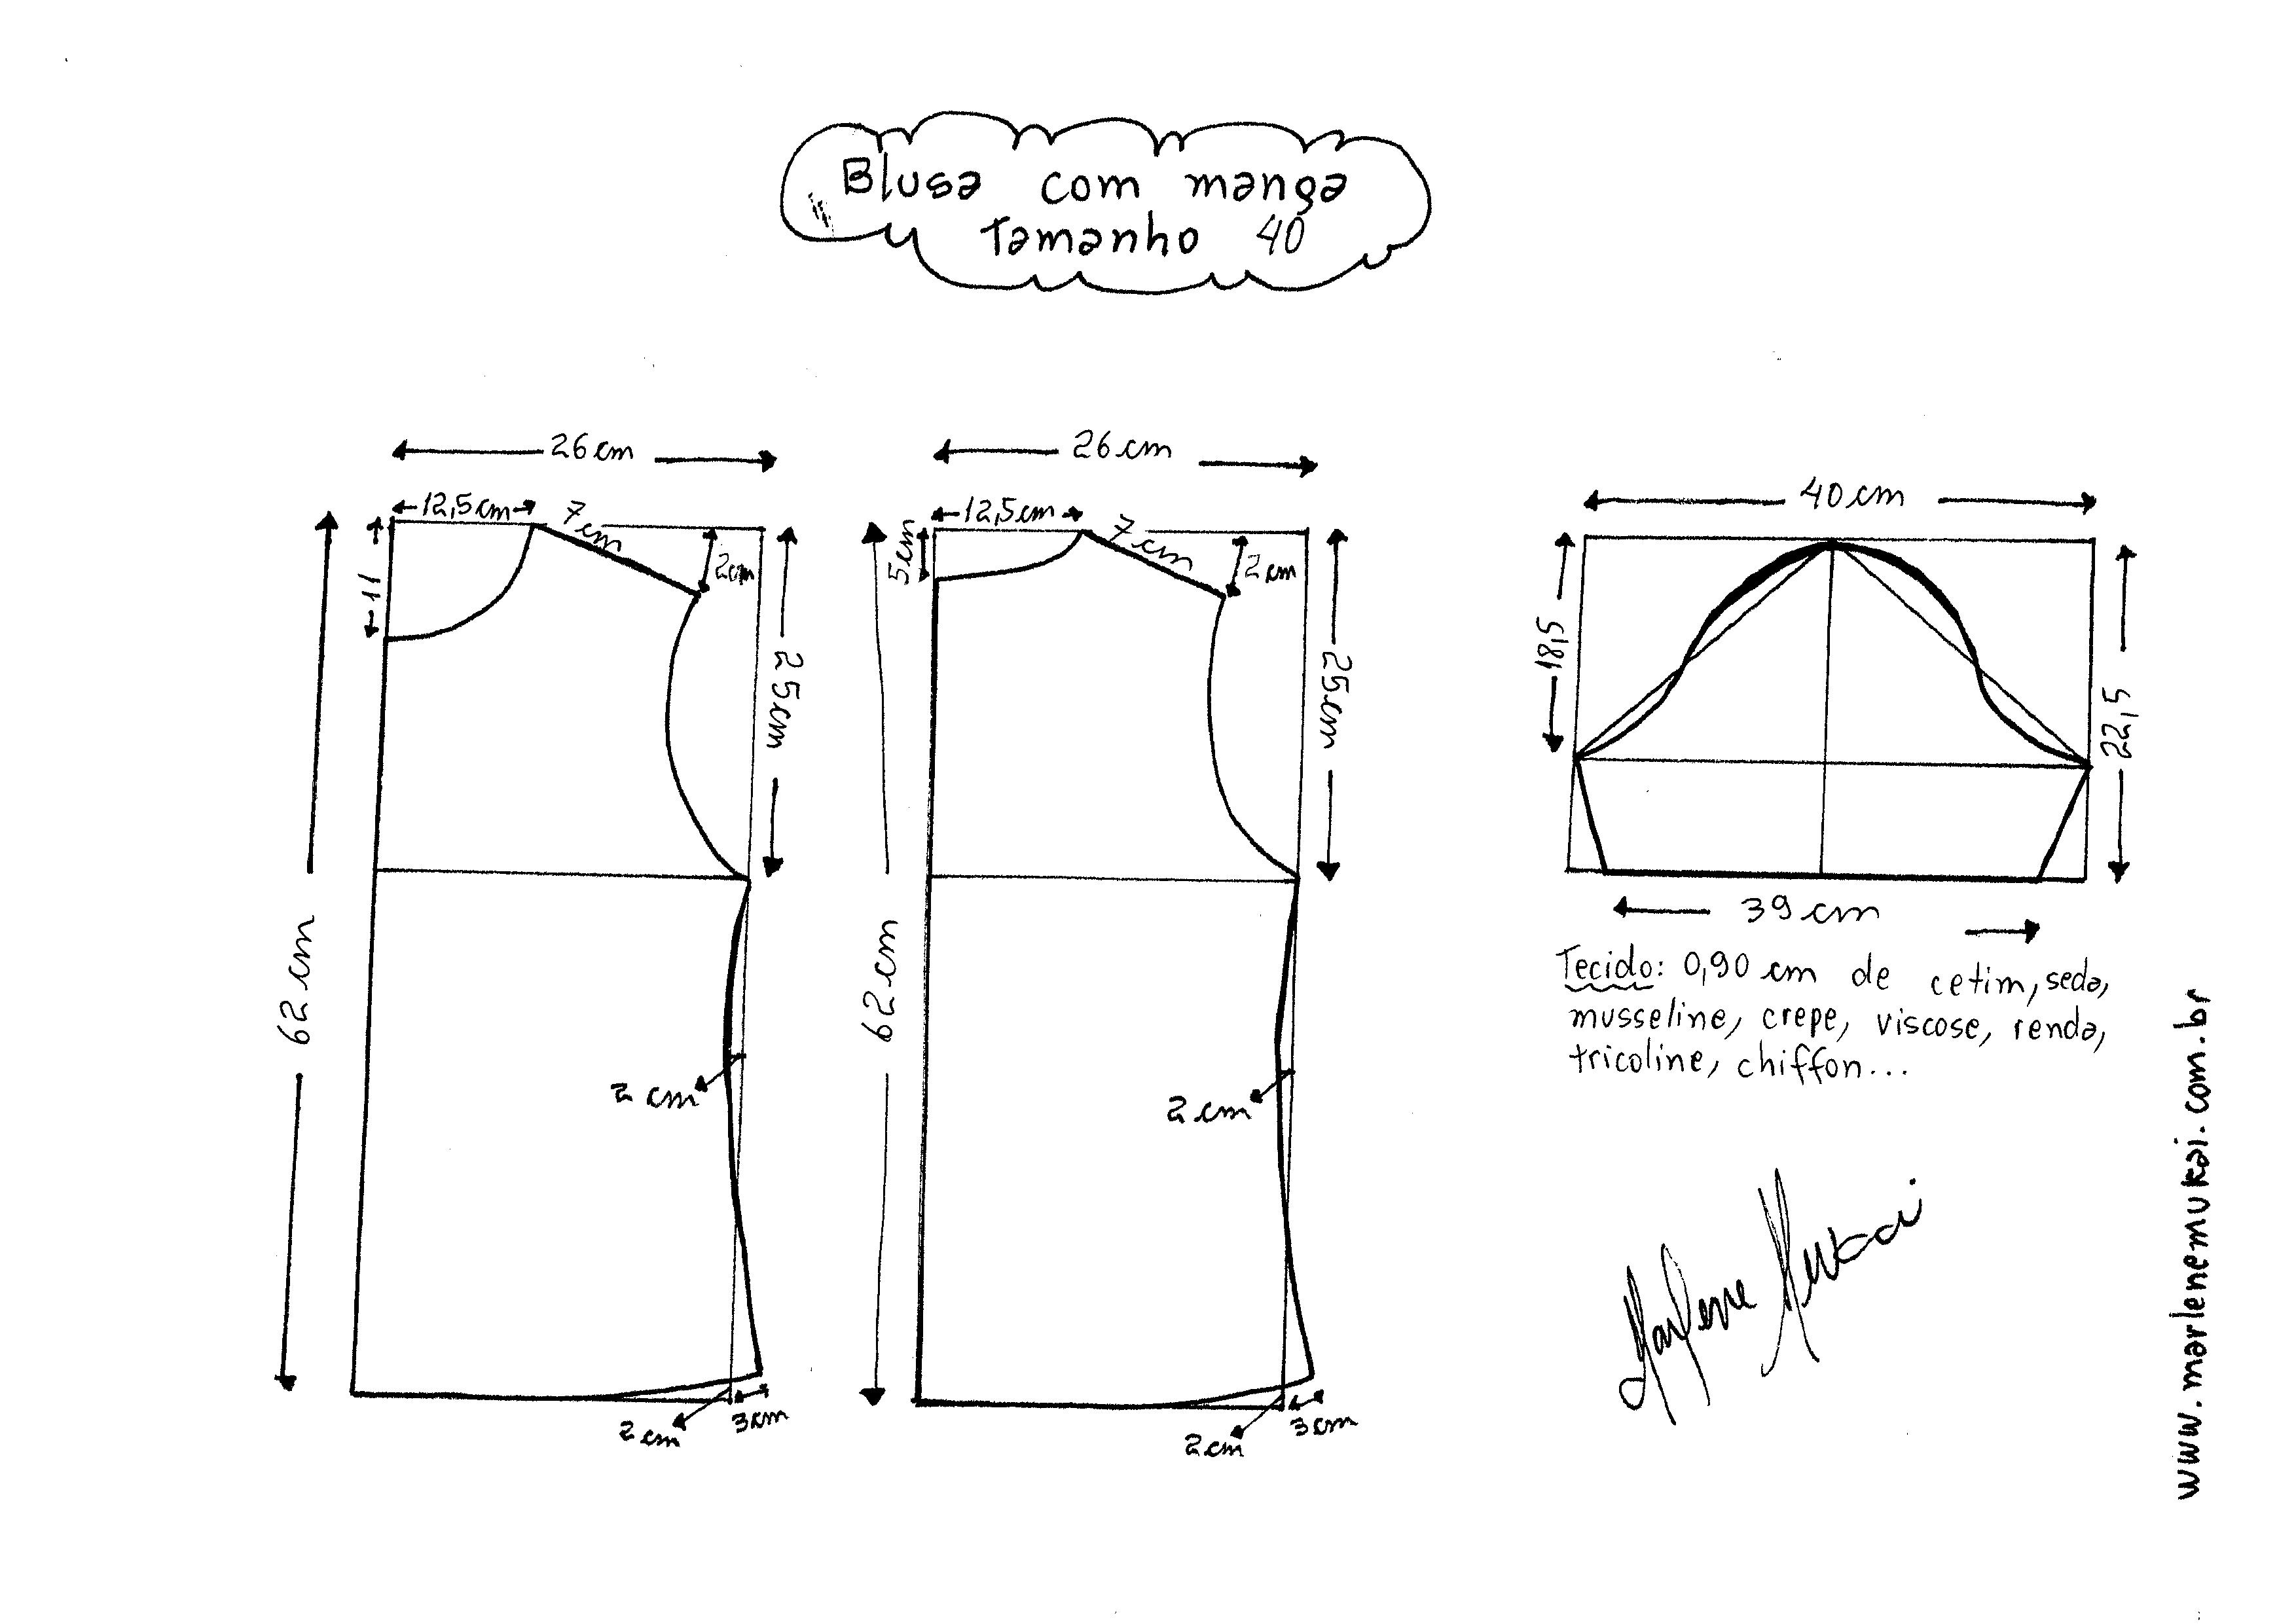 Blusa com manga
Tamanho 40
26 cm
12,5 cm
7 cm
2 cm
11
25 cm
62 cm
2 cm
2 cm
3 cm
26 cm
12,5 cm
7 cm
2 cm
5 cm
25 cm
62 cm
2 cm
2 cm
3 cm
40 cm
18,5
22,5
39 cm
Tecido: 0,90 cm de cetim, seda,
musseline, crepe, viscose, renda,
tricoline, chiffon...
Marlene Mukai
www.marlenemukai.com.br